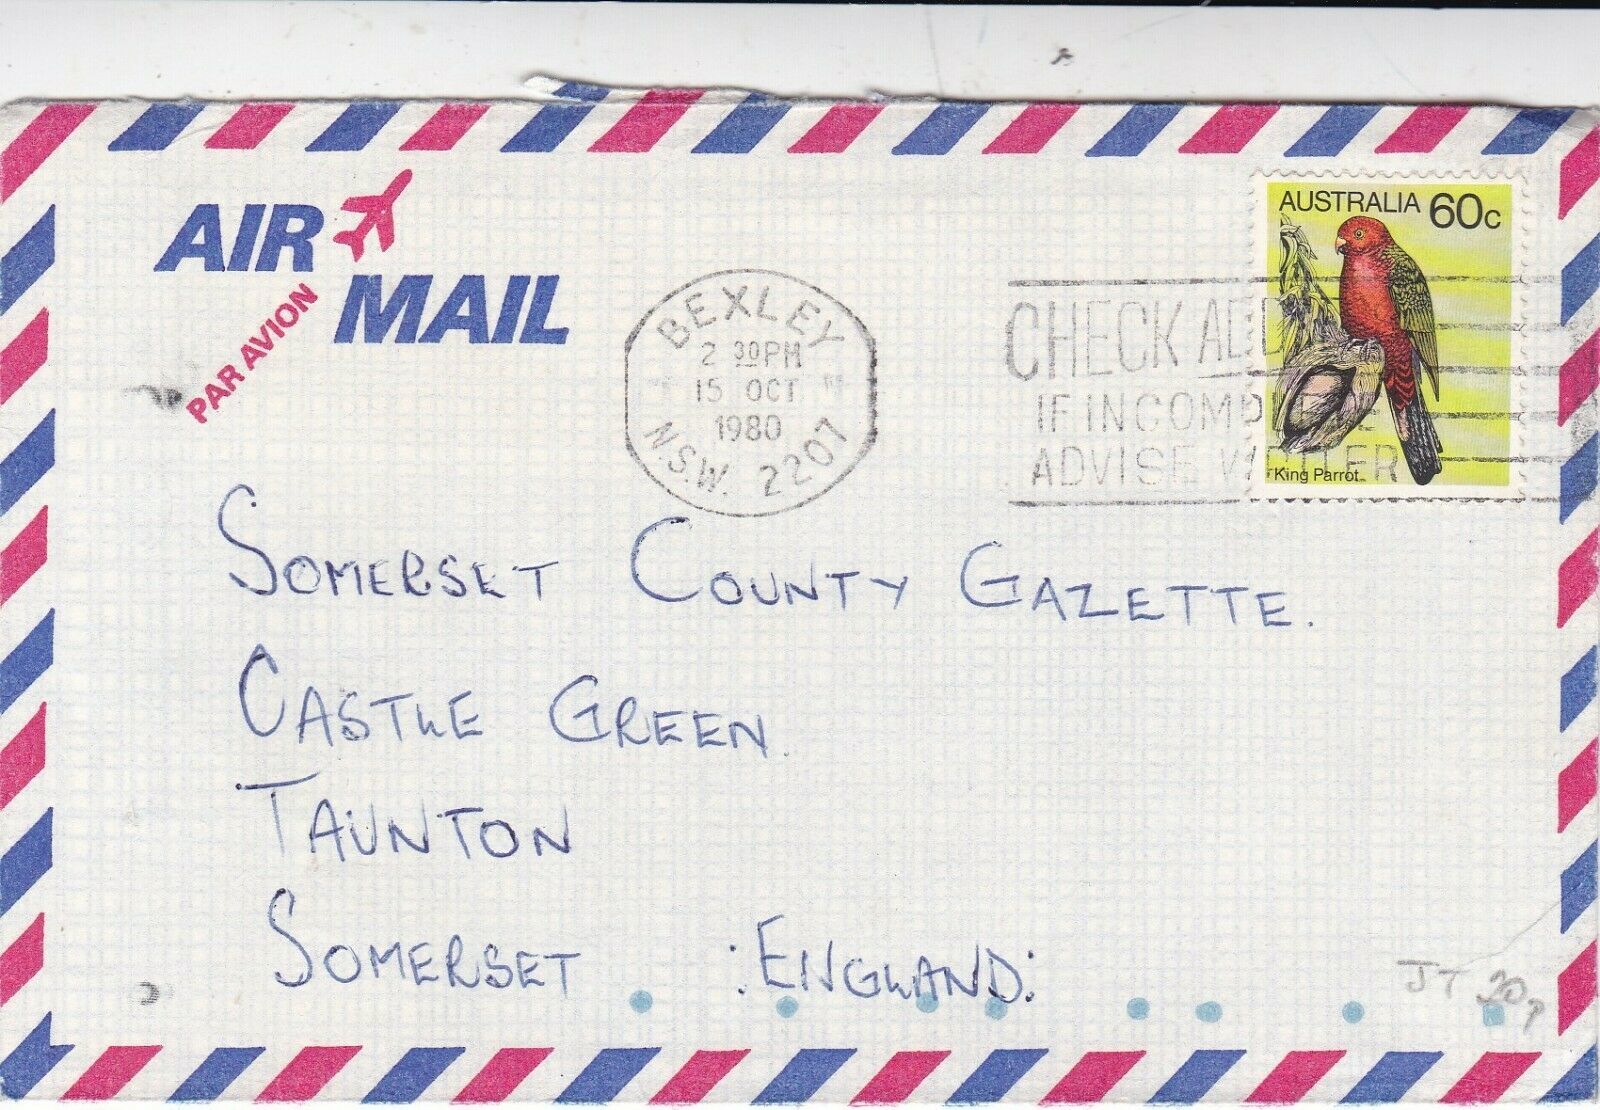 AIR
MAIL
PAR AVION
BEXLEY
2 30PM
15 OCT
1980
N.S.W. 2207
CHECK
IF INCOMPLETE
ADVISE WRITER
AUSTRALIA 60c
King Parrot
SOMERSET COUNTY GAZETTE.
CASTLE GREEN.
TAUNTON
SOMERSET :ENGLAND:
JT 20p